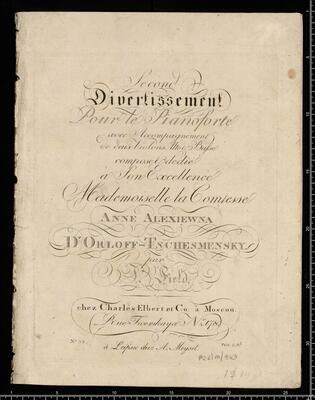 Second
Divertissement
Pour le Pianoforte
avec Accompagnement
de deux Violons, Alto & Basse
composé & dédié
à Son Excellence
Mademoiselle la Comtesse
ANNE ALEXIEWNA
D'ORLOFF-TSCHESMENSKY.
par
J. Field.
chez Charles Elbert et Co. à Moscou.
à Leipsic chez A. Meysel